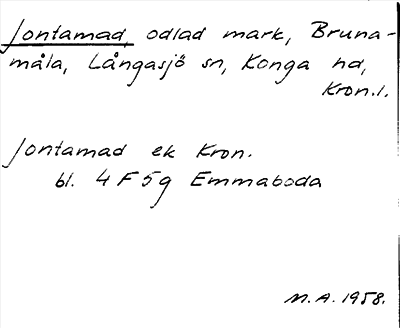 Jontamad, odlad mark, Bruna-
måla, Långasjö sn, Konga hd,
Kron.l.
Jontamad ek Kron.
bl. 4 F 5g Emmaboda
M.A. 1958.